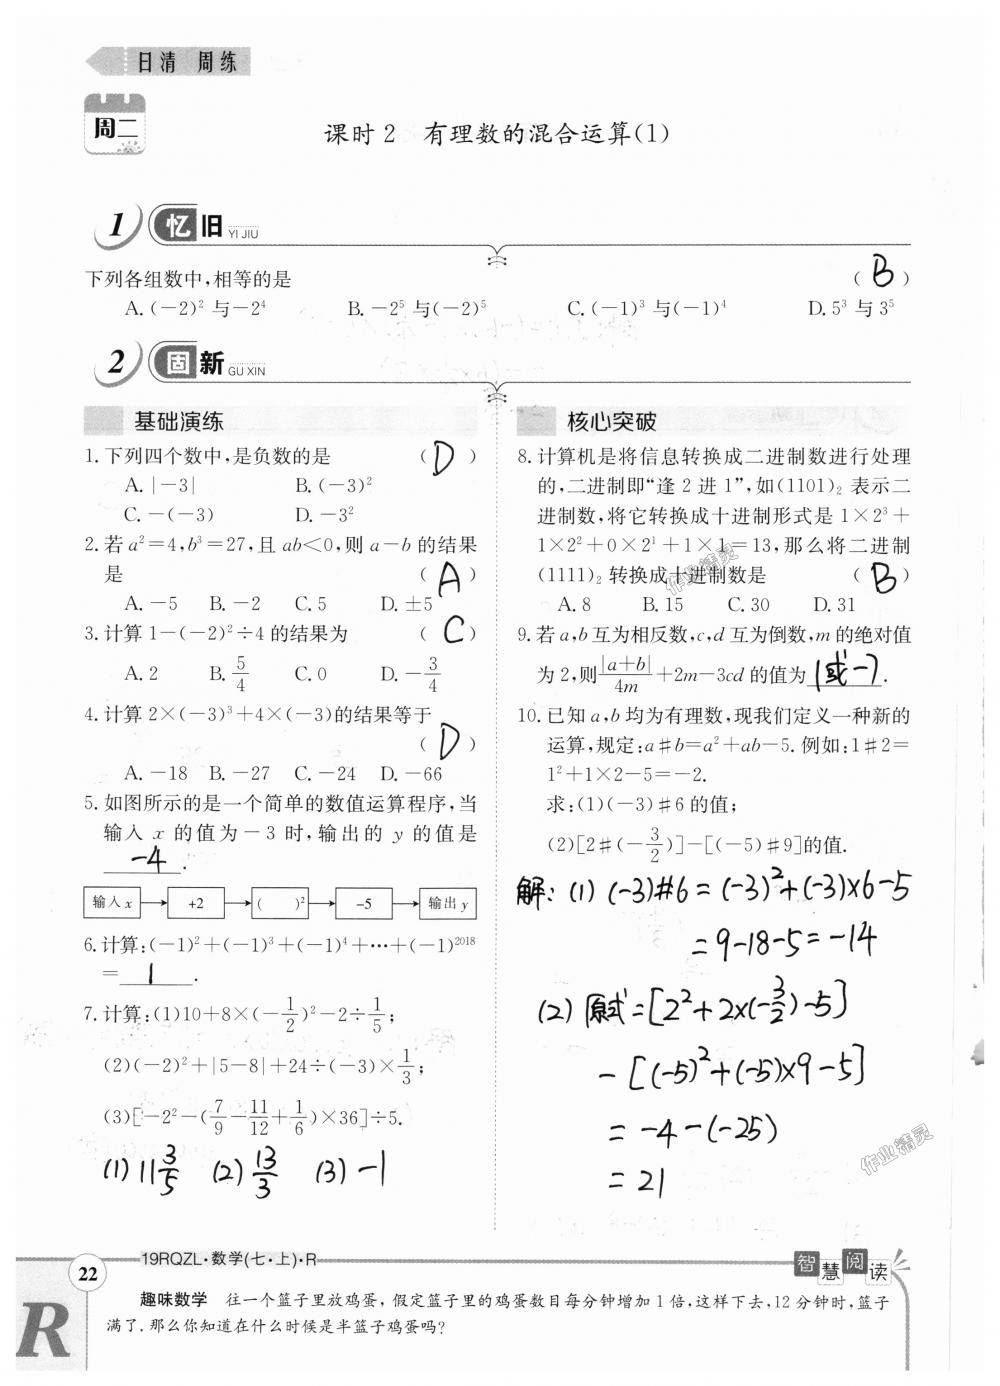 日清 周练
周二
课时2 有理数的混合运算(1)
1 忆旧 YI JIU
下列各组数中,相等的是 ( B )
A. (-2)² 与-2⁴ B. -2⁵ 与(-2)⁵ C. (-1)³ 与(-1)⁴ D. 5³ 与 3⁵
2 固新 GU XIN
基础演练
1. 下列四个数中,是负数的是 ( D )
A. |-3| B. (-3)²
C. -(-3) D. -3²
2. 若 a²=4,b³=27,且 ab<0,则 a-b 的结果
是 ( A )
A. -5 B. -2 C. 5 D. ±5
3. 计算 1-(-2)²÷4 的结果为 ( C )
A. 2 B. 5/4 C. 0 D. -3/4
4. 计算 2×(-3)³+4×(-3)的结果等于
( D )
A. -18 B. -27 C. -24 D. -66
5. 如图所示的是一个简单的数值运算程序,当
输入 x 的值为-3 时,输出的 y 的值是
-4 .
输入 x +2 ( )² -5 输出 y
6. 计算:(-1)²+(-1)³+(-1)⁴+…+(-1)²⁰¹⁸
= 1 .
7. 计算:(1)10+8×(-1/2)²-2÷1/5;
(2)(-2)²+|5-8|+24÷(-3)×1/3;
(3)[-2²-(7/9-11/12+1/6)×36]÷5.
(1) 11 3/5 (2) 13/3 (3) -1
核心突破
8. 计算机是将信息转换成二进制数进行处理
的,二进制即“逢 2 进 1”,如(1101)₂ 表示二
进制数,将它转换成十进制形式是 1×2³+
1×2²+0×2¹+1×1=13,那么将二进制
(1111)₂ 转换成十进制数是 ( B )
A. 8 B. 15 C. 30 D. 31
9. 若 a,b 互为相反数,c,d 互为倒数,m 的绝对值
为 2,则|a+b|/4m+2m-3cd 的值为 1或-7 .
10. 已知 a,b 均为有理数,现我们定义一种新的
运算,规定:a♯b=a²+ab-5. 例如:1♯2=
1²+1×2-5=-2.
求:(1)(-3)♯6 的值;
(2)[2♯(-3/2)]-[(-5)♯9]的值.
解: (1) (-3)#6 = (-3)²+(-3)×6-5
= 9-18-5 = -14
(2) 原式 = [2²+2×(-3/2)-5]
- [(-5)²+(-5)×9-5]
= -4-(-25)
= 21
作业精灵
作业精灵
19RQZL·数学(七·上)·R
智慧阅读
22
R
趣味数学 往一个篮子里放鸡蛋,假定篮子里的鸡蛋数目每分钟增加 1 倍,这样下去,12 分钟时,篮子
满了. 那么你知道在什么时候是半篮子鸡蛋吗?